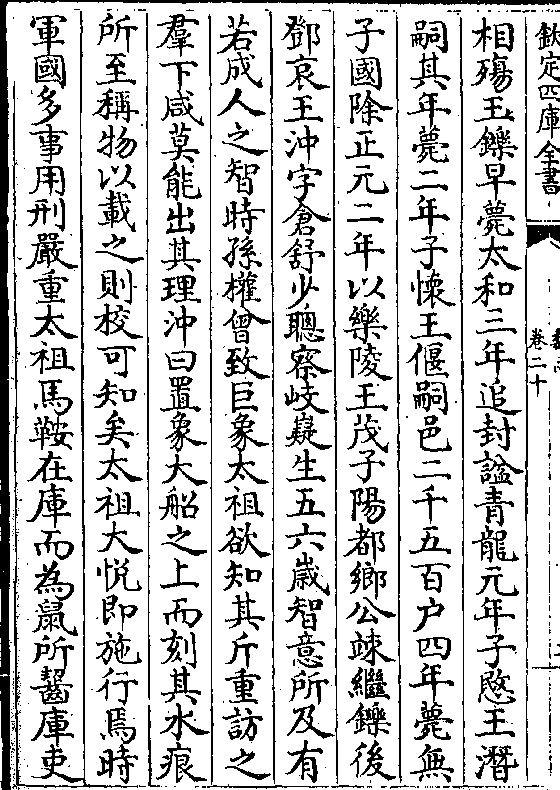 欽定四庫全書
卷二十
相殤王鑠早薨太和三年追封諡青龍元年子愍王潛
嗣其年薨二年子懷王偃嗣邑二千五百户四年薨無
子國除正元二年以樂陵王茂子陽都鄉公竦繼鑠後
鄧哀王沖字倉舒少聰察岐嶷生五六歲智意所及有
若成人之智時孫權曾致巨象太祖欲知其斤重訪之
羣下咸莫能出其理沖曰置象大船之上而刻其水痕
所至稱物以載之則校可知矣太祖大悦即施行焉時
軍國多事用刑嚴重太祖馬鞍在庫而為鼠所齧庫吏